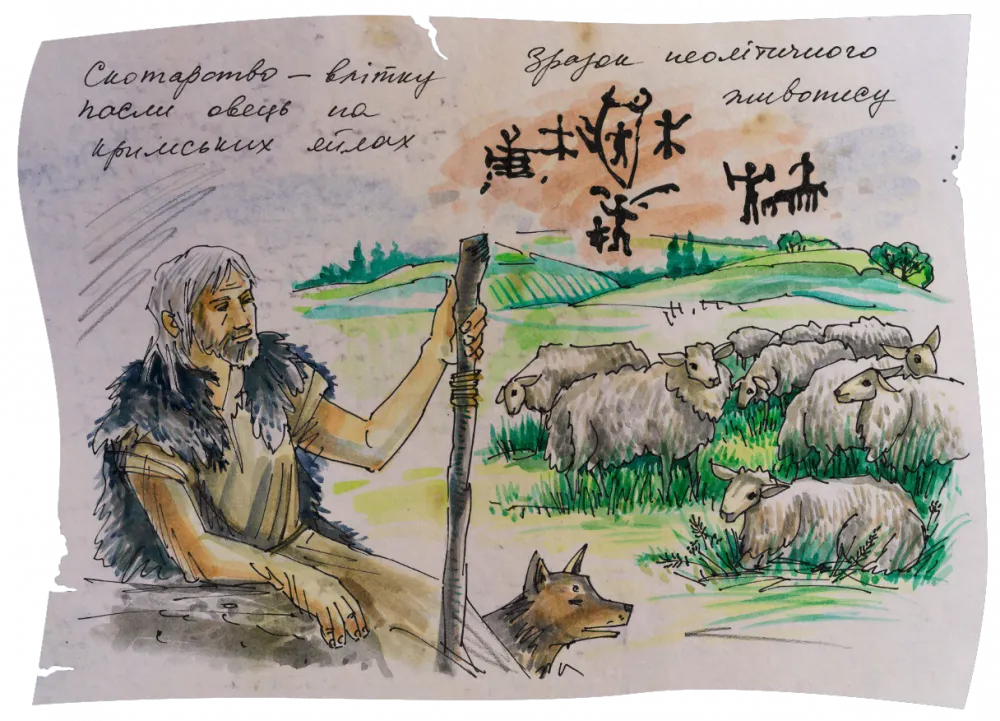 Скотарство – влітку
пасли овець на
кримських яйлах
Зразок неолітичного
живопису